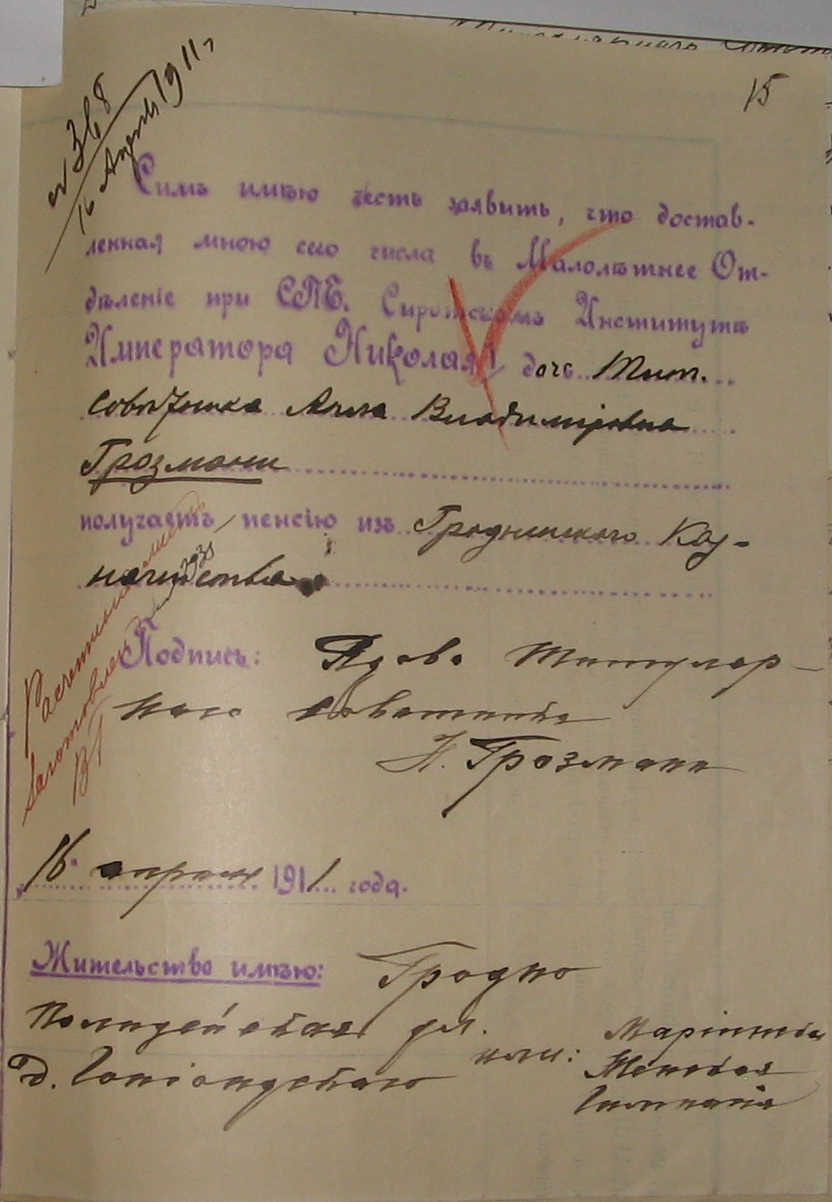 15
№ 368
16 Апреля 1911 г
Симъ имѣю честь заявить, что достав-
ленная мною сего числа въ Малолѣтнее От-
дѣленіе при СПБ. Сиротскомъ Институтѣ
Императора Николая I дочь Тит.
Совѣтника Анна Владимировна
Грозмани
получаетъ пенсію изъ Гродненскаго Каз-
начейства
Расчетный листъ
заготовленъ
ВГ
Подпись: Вдова Титуляр-
наго Совѣтника
Н. Грозмани
16 апреля 1911 года.
Жительство имѣю: Гродно
Полицейская ул.
Д. Гоніондскаго
или: Маріинская
Женская
Гимназія